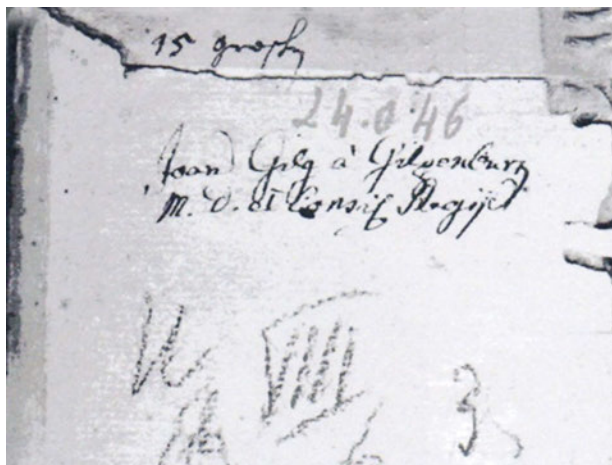 15 grosh
24.d.46
Joan Gilg à Gilgenburg
M. D. et Consil Regije
3